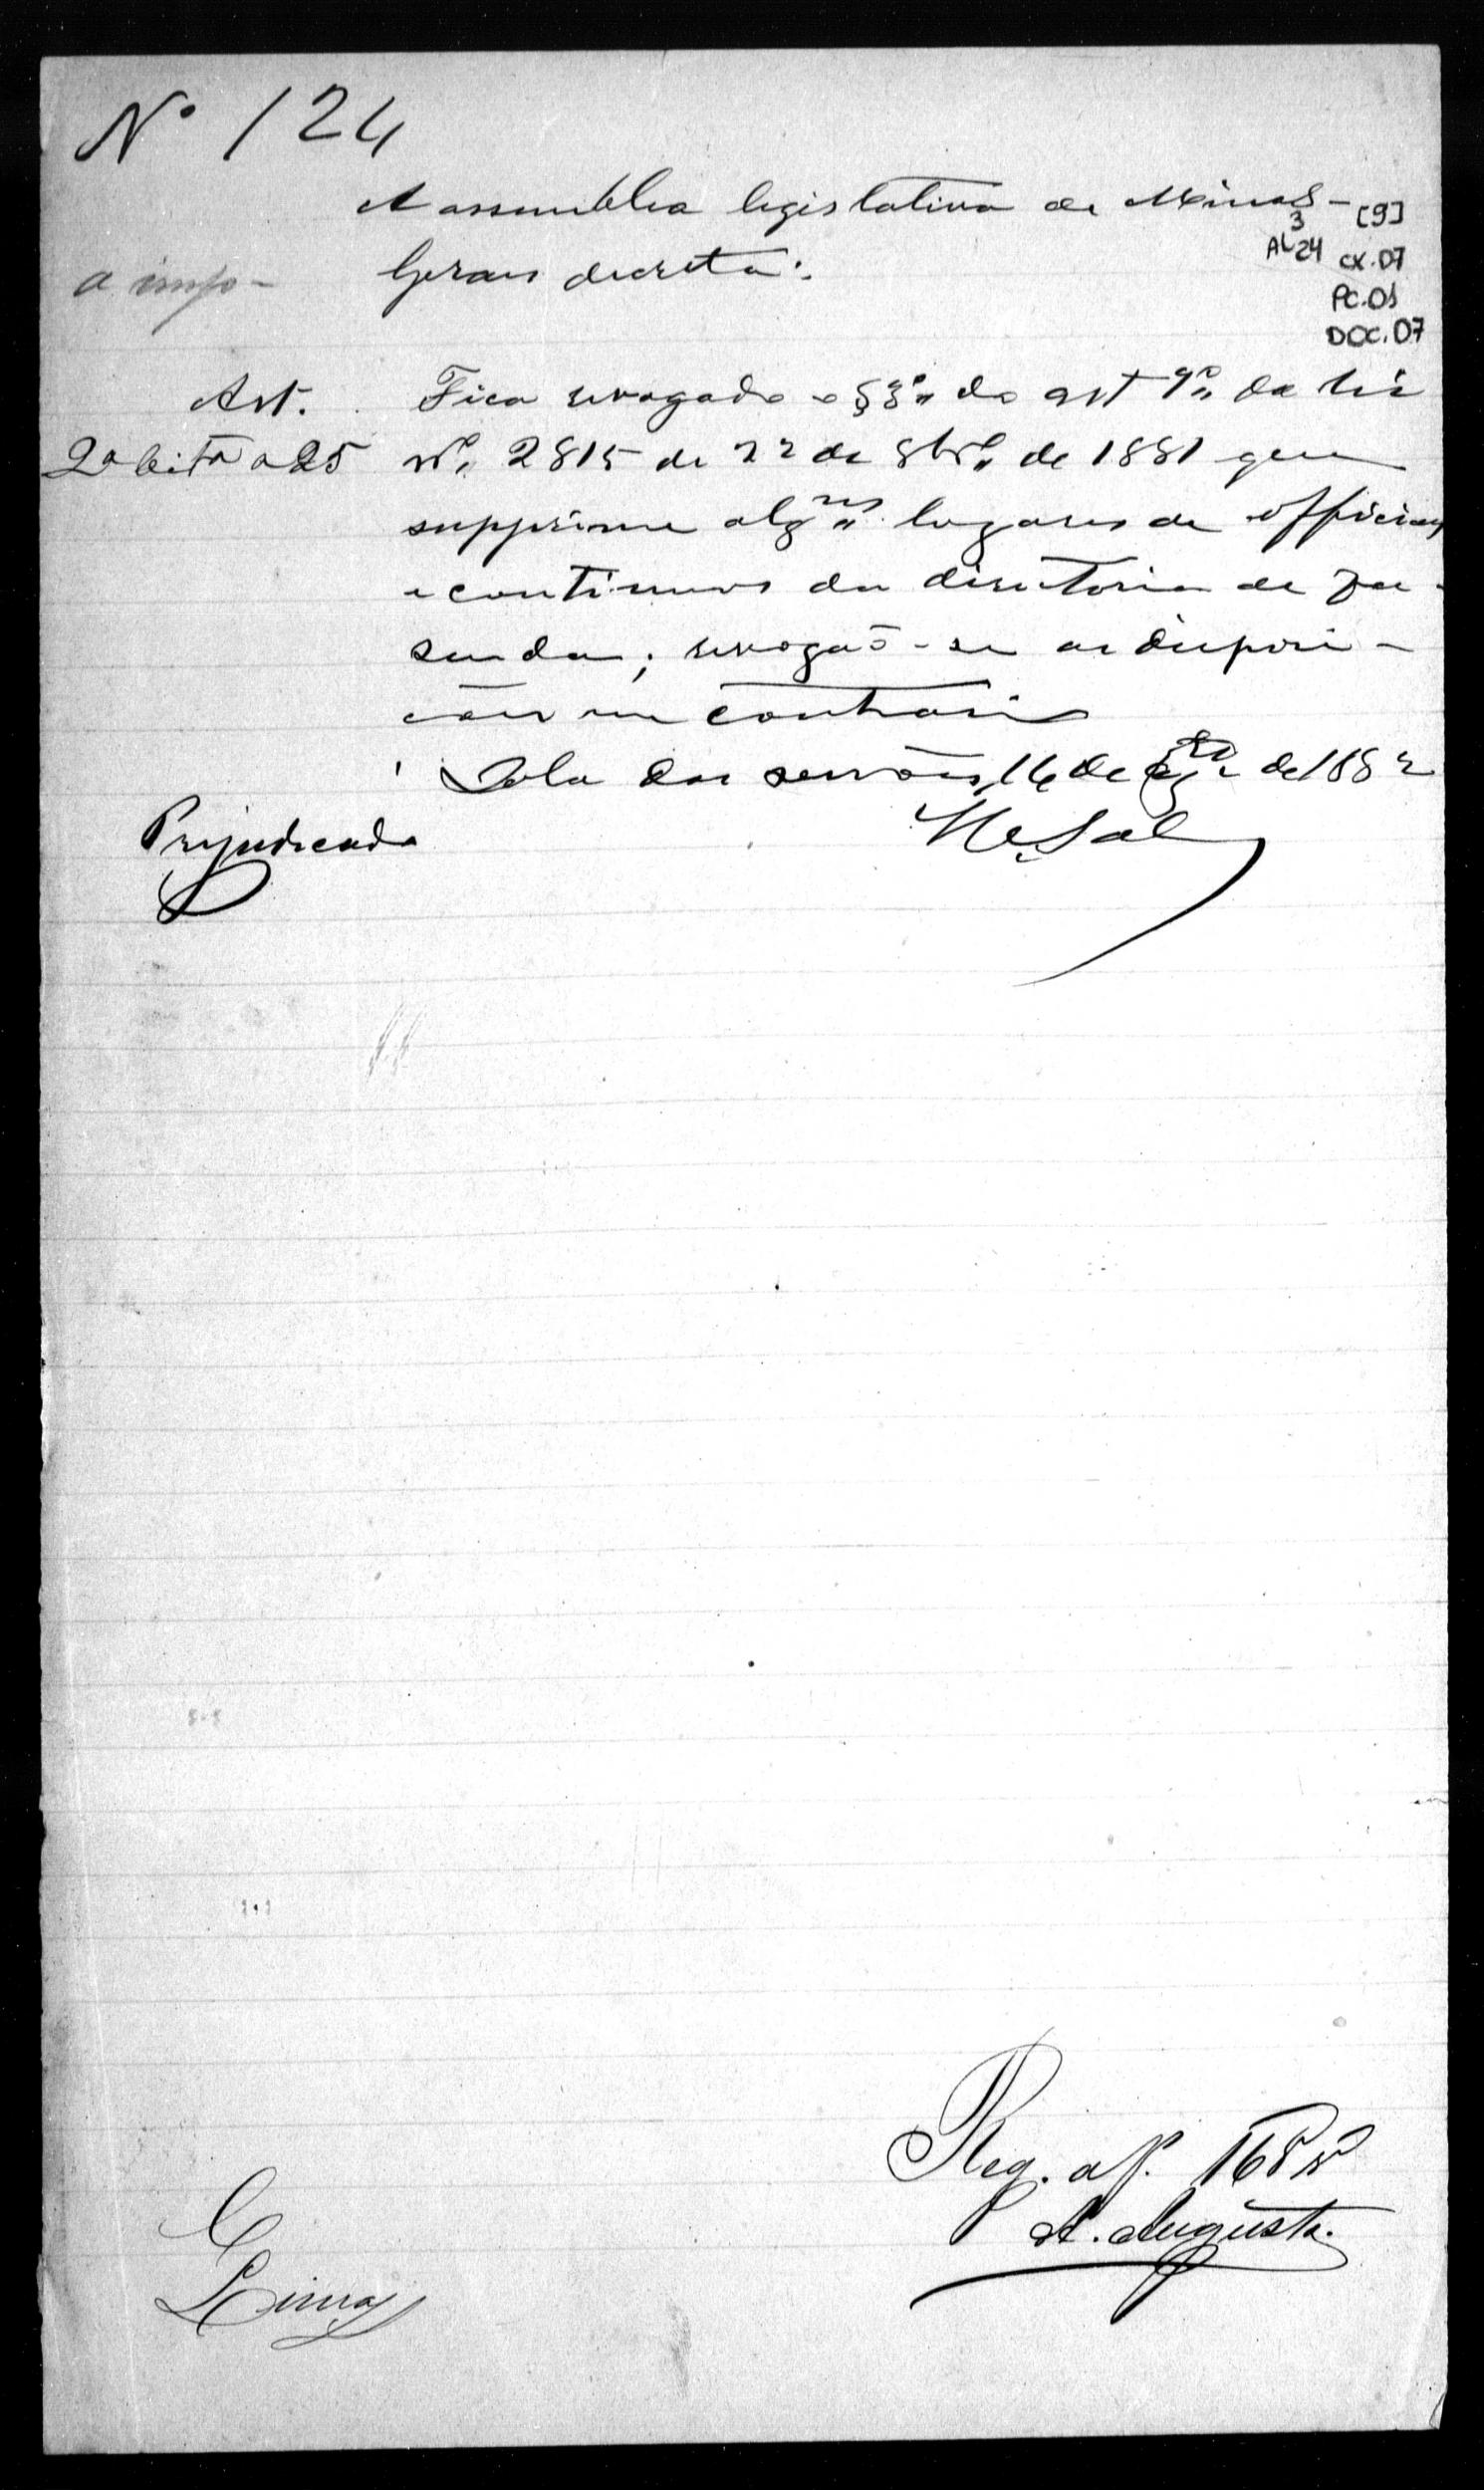 Nº 124
A assemblea legislativa de Minas- [9]
3
AL 24 CX.07
PC.01
DOC.07
a imp- Geraes decreta:
Art. Fica revogado o § 3º do art 9º da lei
Nº 2815 de 22 de 8brº de 1881 que
supprime algns lugares de officiaes
e continuos da directoria de fa-
senda; revogão-se as disposi-
cões em contrario
Sala das sessões, 16 de de 1882
Prejudicado
Reg. a f. 168 v
A. Augusto.
Lima